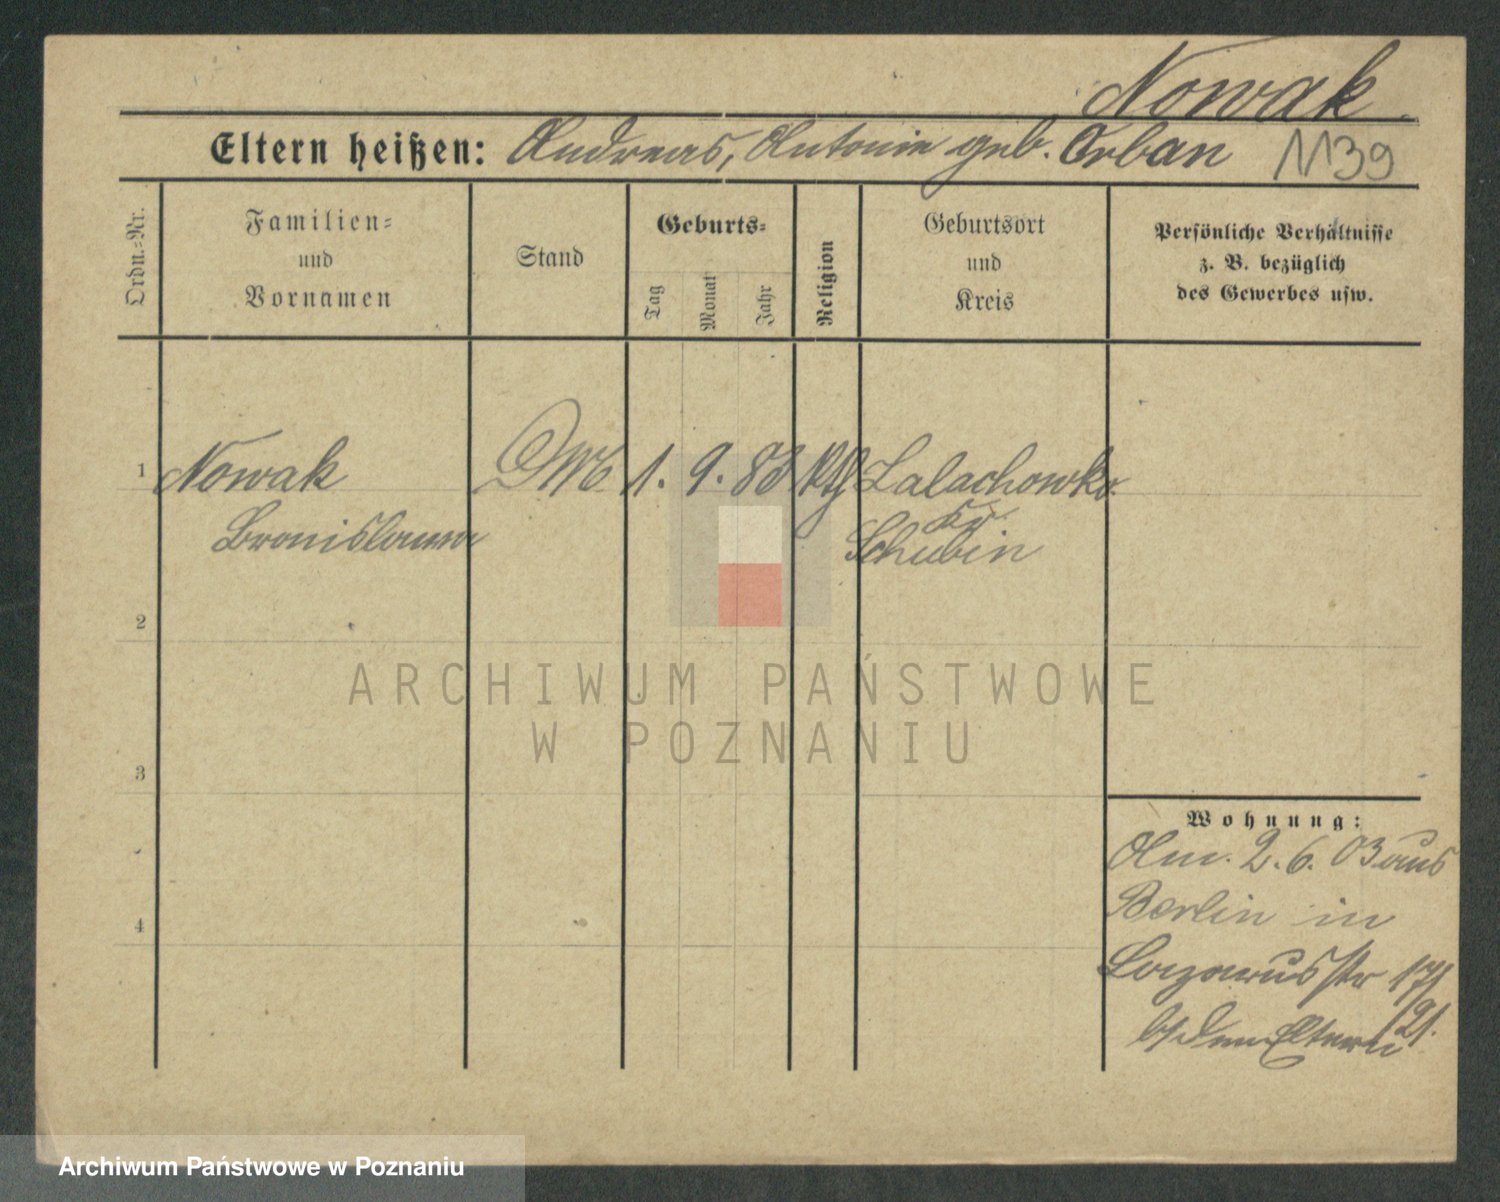 Nowak.
Eltern heißen: Andreas, Antonie geb. Orban 1139
Ordn.=Nr.
Familien=
und
Vornamen
Stand
Geburts=
Tag
Monat
Jahr
Religion
Geburtsort
und
Kreis
Persönliche Verhältnisse
z. B. bezüglich
des Gewerbes usw.
1 Nowak 1. 9. 83 kth Lalachowko
Bronislawa Kr.
Schubin
2
ARCHIWUM PAŃSTWOWE
W POZNANIU
3
Wohnung:
Am. 2. 6. 03 aus
Berlin in
4
Lazarusstr
b/ den Eltern
Archiwum Państwowe w Poznaniu